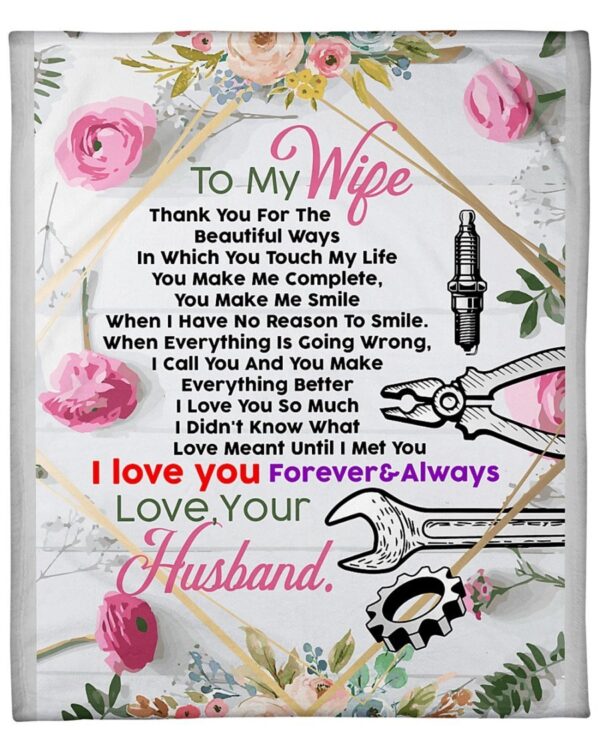 To My Wife
Thank You For The
Beautiful Ways
In Which You Touch My Life
You Make Me Complete,
You Make Me Smile
When I Have No Reason To Smile.
When Everything Is Going Wrong,
I Call You And You Make
Everything Better
I Love You So Much
I Didn't Know What
Love Meant Until I Met You
I love you Forever&Always
Love,Your
Husband.